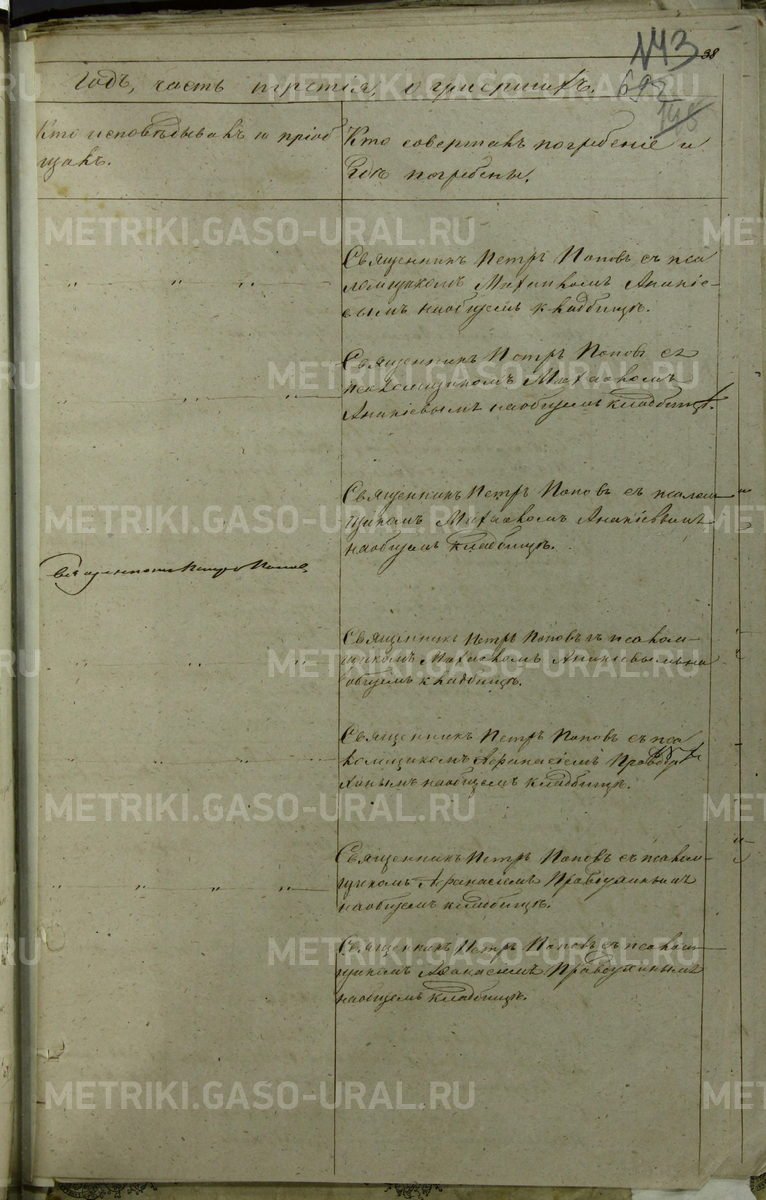 143
38
692
146
Годъ, часть третія, о умершихъ.
Кто исповѣдывалъ и пріоб
щалъ.
Кто совершалъ погребеніе и
гдѣ погребены.
Священникъ Петръ Поповъ съ пса
ломщикомъ Михаиломъ Ананіе-
вымъ на общемъ кладбищѣ.
Священникъ Петръ Поповъ съ
псаломщикомъ Михаиломъ
Ананіевымъ на общемъ кладбищѣ.
Священникъ Петръ Поповъ съ псалом
щикомъ Михаиломъ Ананіевымъ
на общемъ кладбищѣ.
Священникъ Петръ Поповъ
Священникъ Петръ Поповъ съ псалом-
щикомъ Михаиломъ Ананіевымъ на
общемъ кладбищѣ.
Священникъ Петръ Поповъ съ пса
ломщикомъ Афанасіемъ
на общемъ кладбищѣ.
Священникъ Петръ Поповъ съ псалом-
щикомъ Афанасіемъ
на общемъ кладбищѣ.
Священникъ Петръ Поповъ съ псалом-
щикомъ Афанасіемъ
на общемъ кладбищѣ.
METRIKI.GASO-URAL.RU